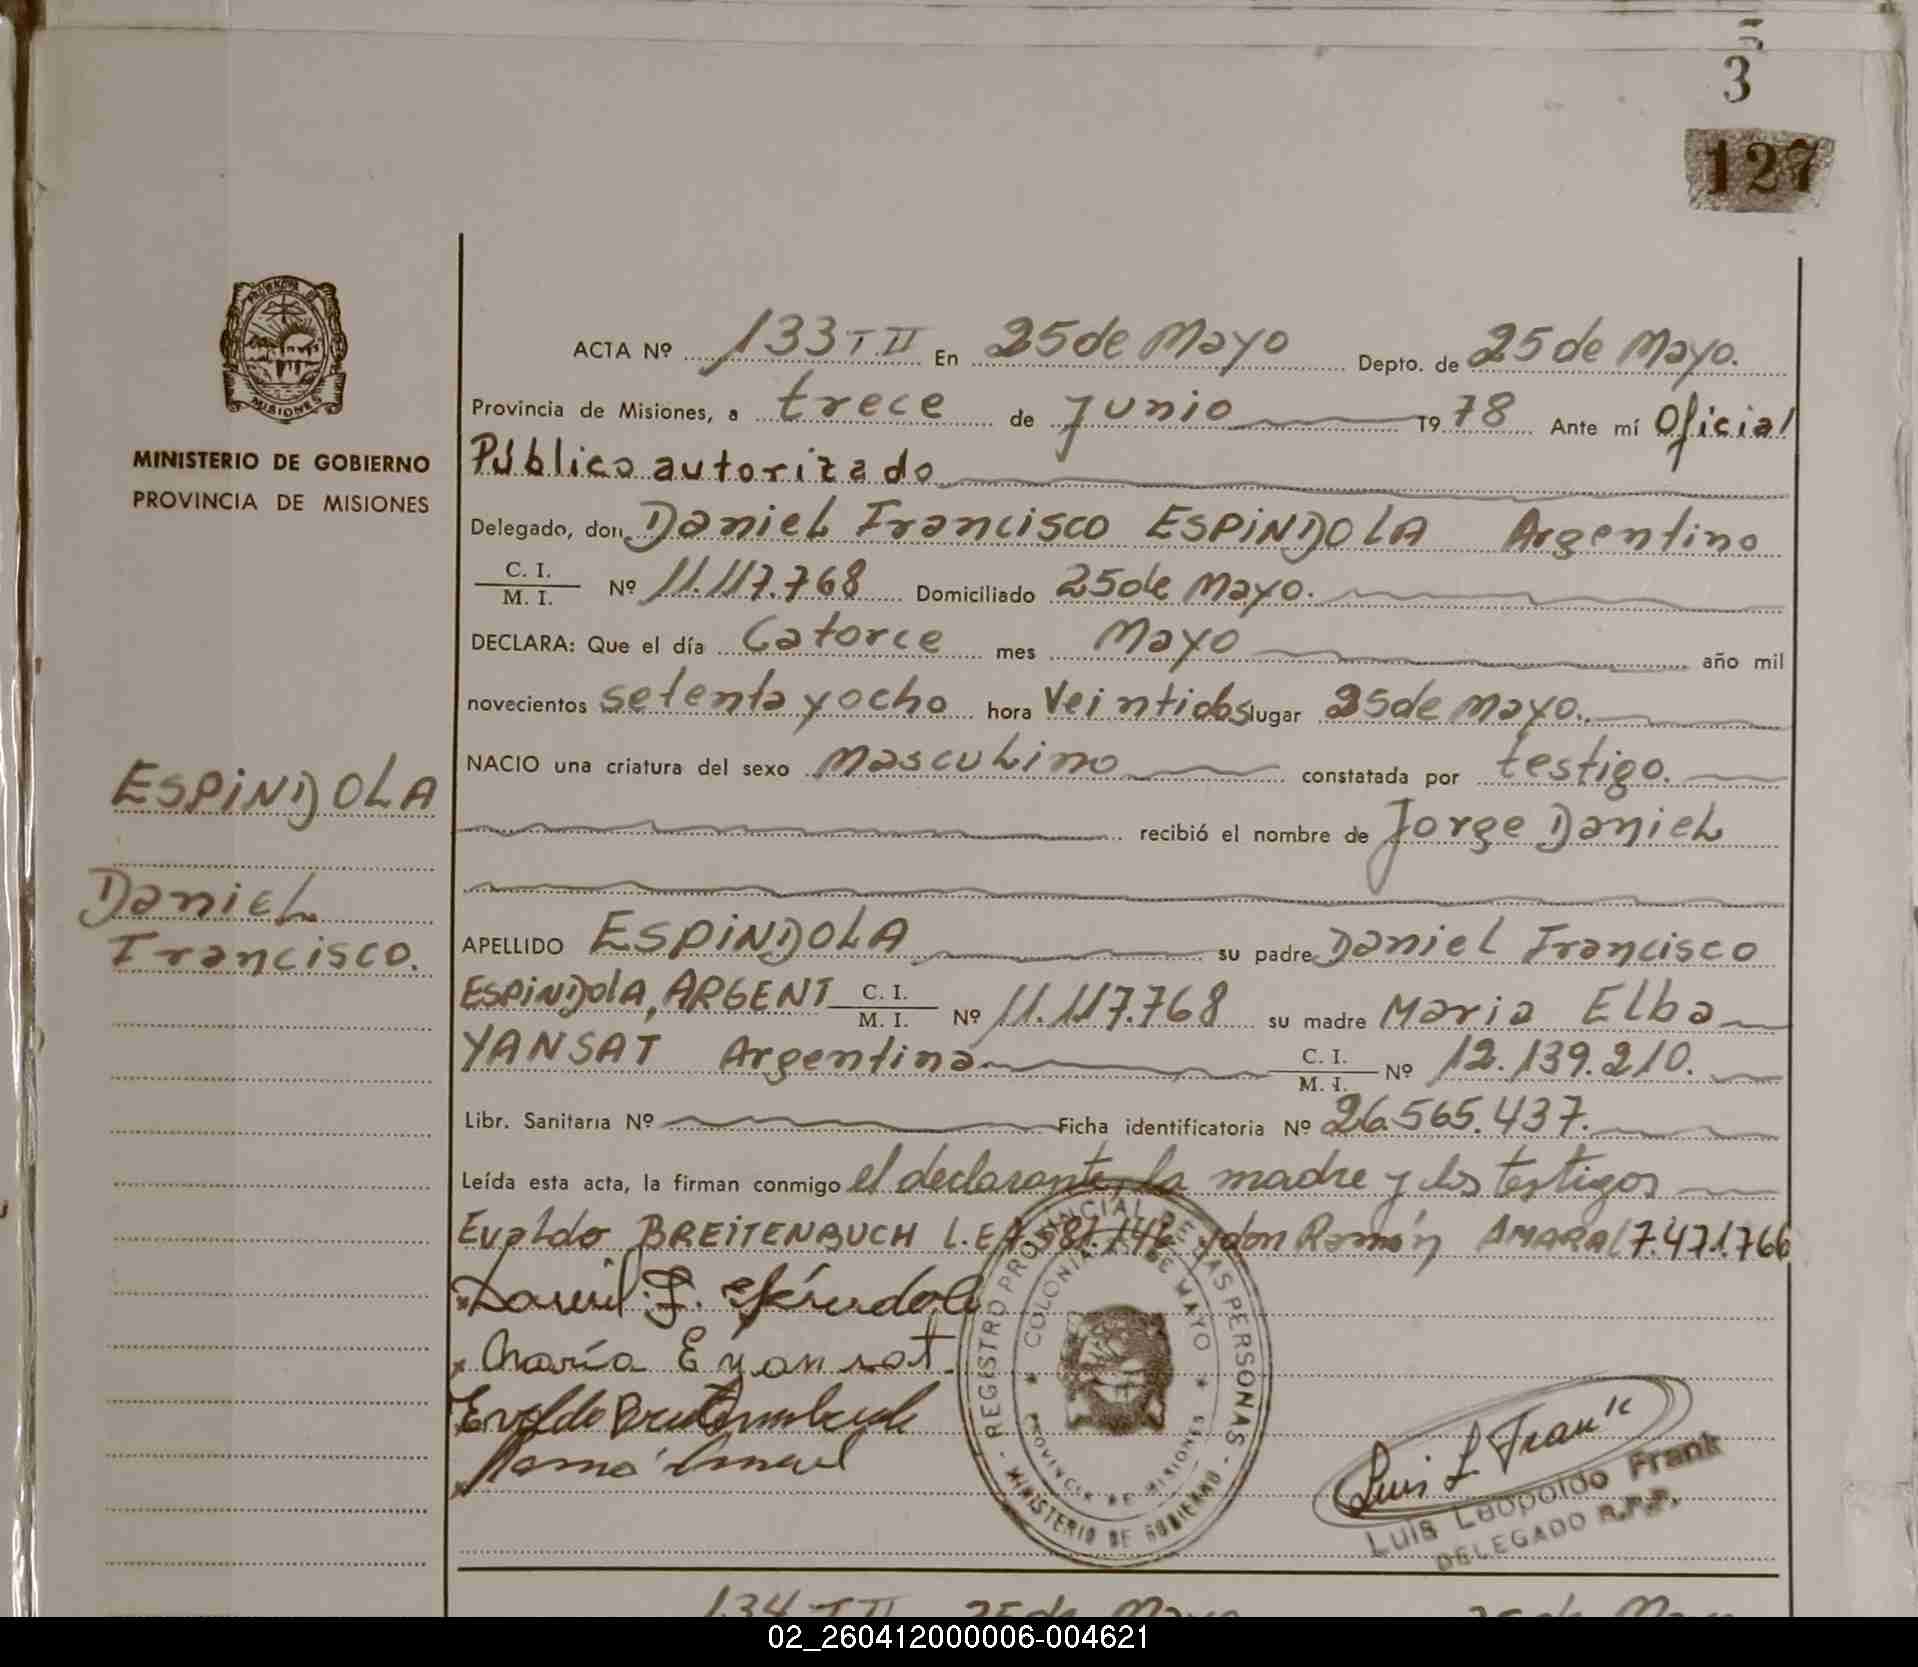 3
127
PROVINCIA DE
MISIONES
MINISTERIO DE GOBIERNO
PROVINCIA DE MISIONES
ESPINDOLA
Daniel
Francisco.
ACTA Nº 133 T II En 25 de Mayo Depto. de 25 de Mayo.
Provincia de Misiones, a trece de Junio 1978 Ante mí Oficial
Público autorizado
Delegado, don Daniel Francisco ESPINDOLA Argentino
C. I.
M. I. Nº 11.117.768 Domiciliado 25 de Mayo.
DECLARA: Que el día Catorce mes Mayo año mil
novecientos setenta y ocho hora Veintidos lugar 25 de Mayo.
NACIO una criatura del sexo Masculino constatada por testigo.
recibió el nombre de Jorge Daniel
APELLIDO ESPINDOLA su padre Daniel Francisco
ESPINDOLA, ARGENT C. I.
M. I. Nº 11.117.768 su madre Maria Elba
YANSAT Argentina C. I.
M. I. Nº 12.139.210.
Libr. Sanitaria Nº Ficha identificatoria Nº 26.565.437.
Leída esta acta, la firman conmigo el declarante, la madre y los testigos
Evaldo BREITENBUCH L.E 7.581.746 y don Ramón AMARAL 7.471.766
Daniel F. Espíndola
María E Yansat.
Evaldo Breitenbuch
Ramó Amaral
REGISTRO PROVINCIAL DE LAS PERSONAS
MINISTERIO DE GOBIERNO
COLONIA 25 DE MAYO
PROVINCIA DE MISIONES
Luis L Frank
Luis Leopoldo Frank
DELEGADO R.P.P.
134 T II 25 de Mayo 25 de Mayo
02_260412000006-004621